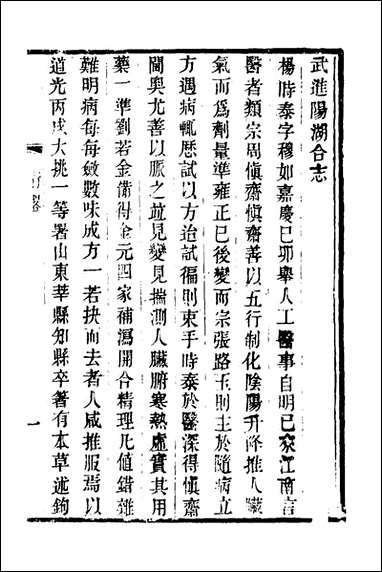 武進陽湖合志
楊時泰字穆如嘉慶己卯舉人工醫事自明已來江南言
醫者類宗周愼齋愼齋善以五行制化陰陽升降推人臟
氣而爲劑量準雍正已後變而宗張路玉則主於隨病立
方遇病輒歷試以方治試徧則束手時泰於醫深得愼齋
閫奧尤善以脈之竝見變見揣測人臟腑寒熱虛實其用
藥一準劉若金備得金元四家補瀉開合精理凡値錯雜
難明病每每斂數味成方一若抉而去者人咸推服焉以
道光丙戌大挑一等署山東莘縣知縣卒著有本草述鉤
一